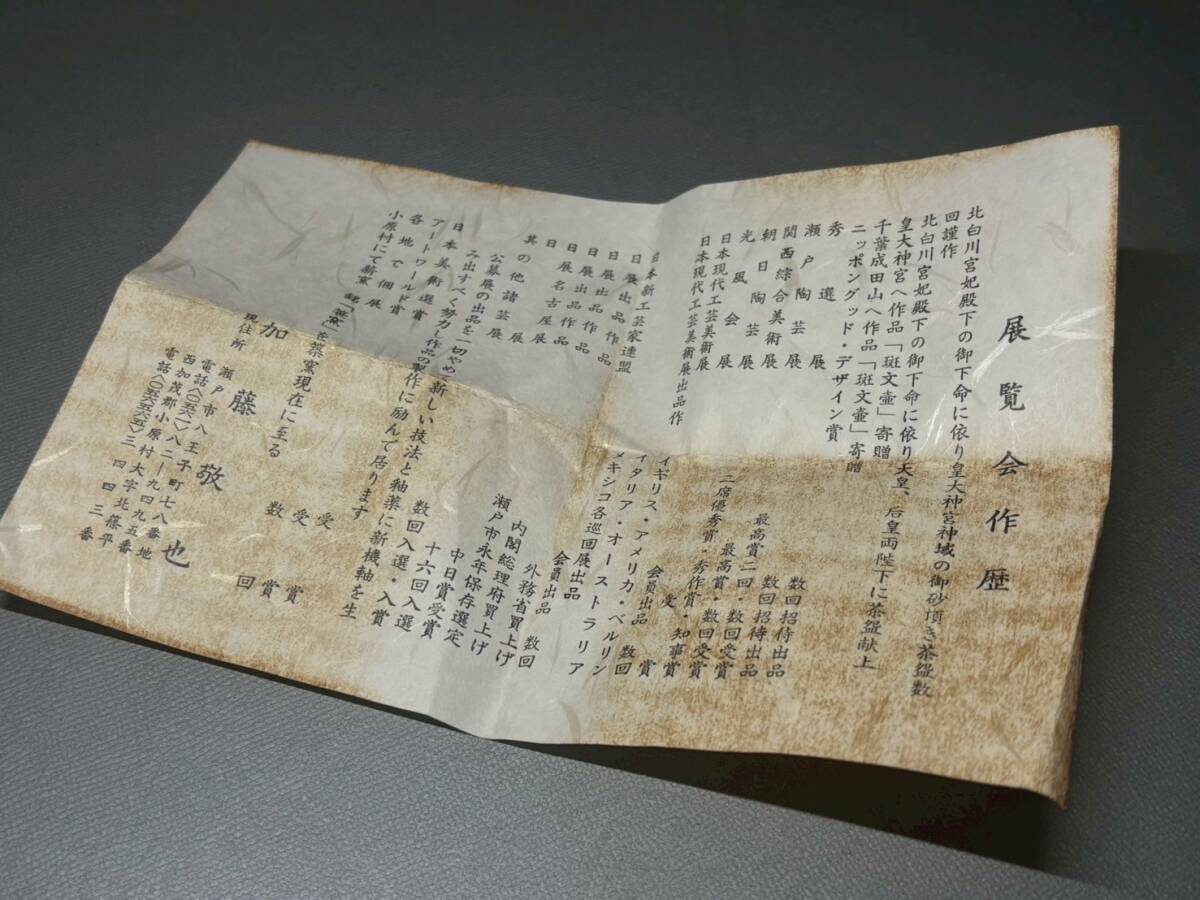 展覧会作歴
北白川宮妃殿下の御下命に依り皇大神宮神域の御砂頂き茶盌数
回謹作
北白川宮妃殿下の御下命に依り天皇、后皇両陛下に茶盌献上
皇大神宮へ作品「斑文壷」寄贈
千葉成田山へ作品「斑文壷」寄贈
ニッポングッド・デザイン賞
秀選 数回招待出品
瀬戸陶芸展 数回招待出品
関西綜合美術展 最高賞二回・数回受賞
朝日陶芸展 最高賞・数回受賞
光風会展 二席優秀賞・秀作賞・知事賞
日本現代工芸美術展 会員出品 受賞
日本現代工芸美術展出品作 数回
イギリス、アメリカ・ベルリン
イタリア・オーストラリア
メキシコ各巡回展出品
日本新工芸家連盟 会員出品
日展出品 数回
日展出品作品 外務省買上げ
日展出品作品 内閣総理府買上げ
日展名古屋展 瀬戸市永年保存選定
中日賞受賞
其の他諸芸展 十六回入選
数回入選・入賞
公募展の出品を一切やめ新しい技法と釉薬に新機軸を生
み出すべく努力し作品の製作に励んで居ります
日本美術選賞 受賞
アートワールド賞 受賞
各地で個展 数回
小原村にて新窯 銘「蔗窯」を築窯現在に至る
加藤敬也
現住所 瀬戸市八王子町七八番地
電話〈〇五六一〉八二ー九四九五番
西加茂郡小原村大字北篠平
電話〈〇五六五六五〉三四四三番